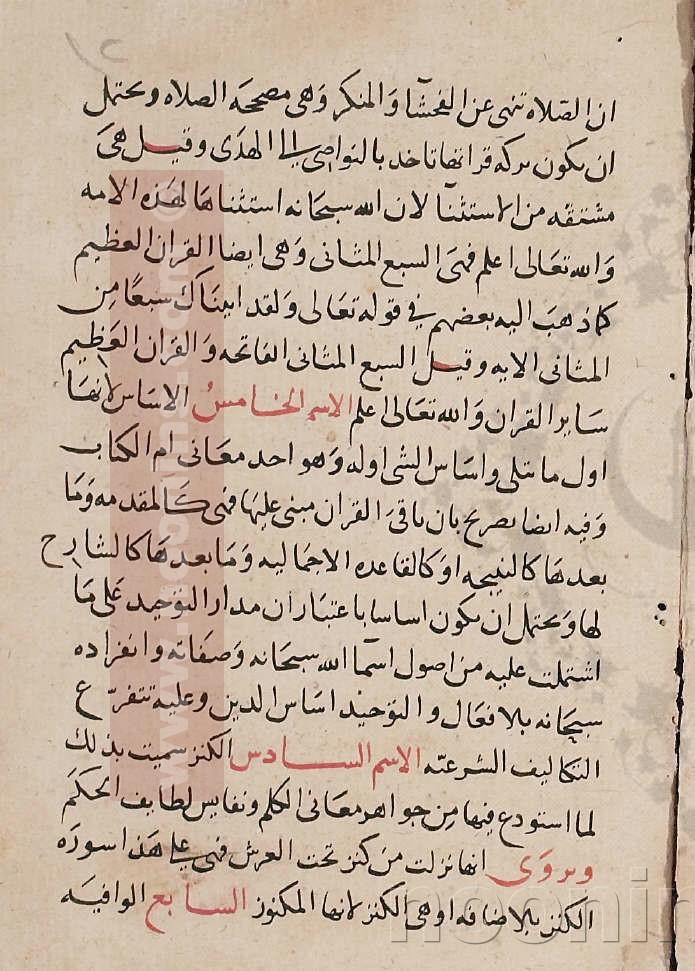 ان الصلاه تنهى عن الفحشا والمنكر وهى مصححه الصلاه ويحتمل
ان يكون بركه قراتها تاخد بالنواصى الى الهدى وقيل هى
مشتقه من الاستثنا لان الله سبحانه استثناها لهذه الامه
والله تعالى اعلم فهى السبع المثانى وهى ايضا القران العظيم
كما ذهب اليه بعضهم في قوله تعالى ولقد اتيناك سبعا من
المثانى الايه وقيل السبع المثانى الفاتحه والقران العظيم
ساير القران والله تعالى اعلم الاسم الخامس الاساس لانها
اول ما يتلى واساس الشى اوله وهو احد معانى ام الكتاب
وفيه ايضا تصريح بان باقى القران مبنى عليها فهى كالمقدمه وما
بعدها كالنتيجه او كالقاعده الاجماليه وما بعدها كالشارح
لها ويحتمل ان يكون اساسا باعتبار ان مدار التوحيد على ما
اشتملت عليه من اصول اسما الله سبحانه وصفاته وانفراده
سبحانه بالافعال والتوحيد اساس الدين وعليه تتفرع
التكاليف الشرعيه الاسم السادس الكنز سميت بذلك
لما استودع فيها من جواهر معانى الكلم ونفايس لطايف الحكم
ويروى انها نزلت من كنز تحت العرش فهى على هذا سوره
الكنز بالاضافه او هى الكنز لانها المكنوز السابع الوافيه